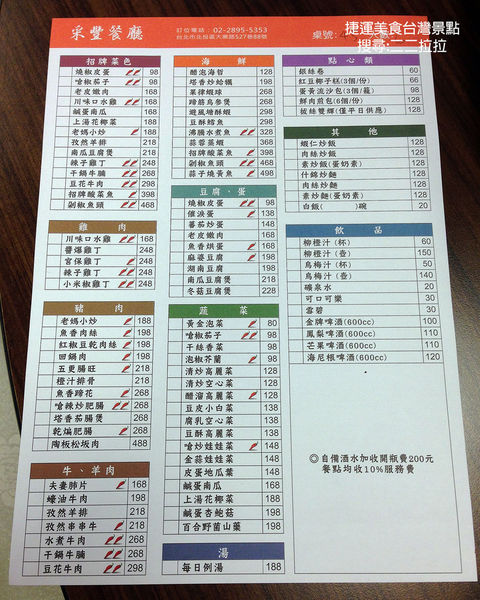 采豐餐廳
訂位電話:02-2895-5353
台北市北投區大興路527巷88號
桌號:
捷運美食台灣景點
搜尋:三三拉拉
招牌菜色
燒椒皮蛋 98
嗆椒茄子 98
老皮嫩肉 168
川味口水雞 168
鹹蛋南瓜 168
上湯花椰菜 198
老媽小炒 168
孜然羊排 218
南瓜豆腐煲 198
辣子雞丁 248
干鍋牛腩 248
豆花牛肉 298
招牌酸菜魚 398
剁椒魚頭 468
雞肉
川味口水雞 168
醬爆雞丁 218
宮保雞丁 218
辣子雞丁 248
小米椒雞丁 248
豬肉
老媽小炒 188
魚香肉絲 198
紅椒豆乾肉絲 198
回鍋肉 198
五更腸旺 218
橙汁排骨 218
魚香蹄花 218
嗆辣炒肥腸 218
塔香茄腸煲 198
乾煸肥腸 218
陶板松坂肉 488
牛、羊肉
夫妻肺片 168
蠔油牛肉 198
孜然羊排 218
孜然串串牛 218
水煮牛肉 268
干鍋牛腩 248
豆花牛肉 298
海鮮
醋泡海哲 128
塔香炒蛤蠣 198
果律蝦球 268
蹄筋烏參煲 268
避風塘鮮蝦 268
豆酥鱈魚 298
沸騰水煮魚 328
蒜蓉蒸蝦 368
招牌酸菜魚 398
剁椒魚頭 468
蒜子燒黃魚 498
豆腐、蛋
燒椒皮蛋 98
催淚蛋 138
蕃茄炒蛋 148
老皮嫩肉 168
魚香烘蛋 168
麻婆豆腐 168
湖南豆腐 198
南瓜豆腐煲 198
冬菇豆腐煲 198
蔬菜
黃金泡菜 80
嗆椒茄子 98
干絲香菜 98
泡椒芥蘭 168
清炒高麗菜 168
清炒空心菜 168
醋溜高麗菜 168
豆皮小白菜 168
腐乳空心菜 168
豆酥高麗菜 168
嗆炒娃娃菜 168
金蒜娃娃菜 168
皮蛋地瓜葉 168
鹹蛋南瓜 168
上湯花椰菜 198
鹹蛋杏鮑菇 198
百合野菌山葉 198
湯
每日例湯 188
點心類
銀絲卷 60
紅豆椰子糕(3個/份) 66
蛋黃流沙包(3個/籠) 98
鮮肉煎包(6個/份) 128
拔絲雙輝(僅平日供應) 128
其他
蝦仁炒飯 128
肉絲炒飯 128
素炒飯(蛋奶素) 128
什錦炒麵 128
肉絲炒麵 128
素炒麵(蛋奶素) 128
白飯( )碗 20
飲品
柳橙汁(杯) 60
柳橙汁(壺) 150
烏梅汁(杯) 50
烏梅汁(壺) 140
礦泉水 20
可口可樂 30
雪碧 30
金牌啤酒(600cc) 100
鳳梨啤酒(600cc) 110
芒果啤酒(600cc) 110
海尼根啤酒(600cc) 120
◎自備酒水加收開瓶費200元
餐點均收10%服務費